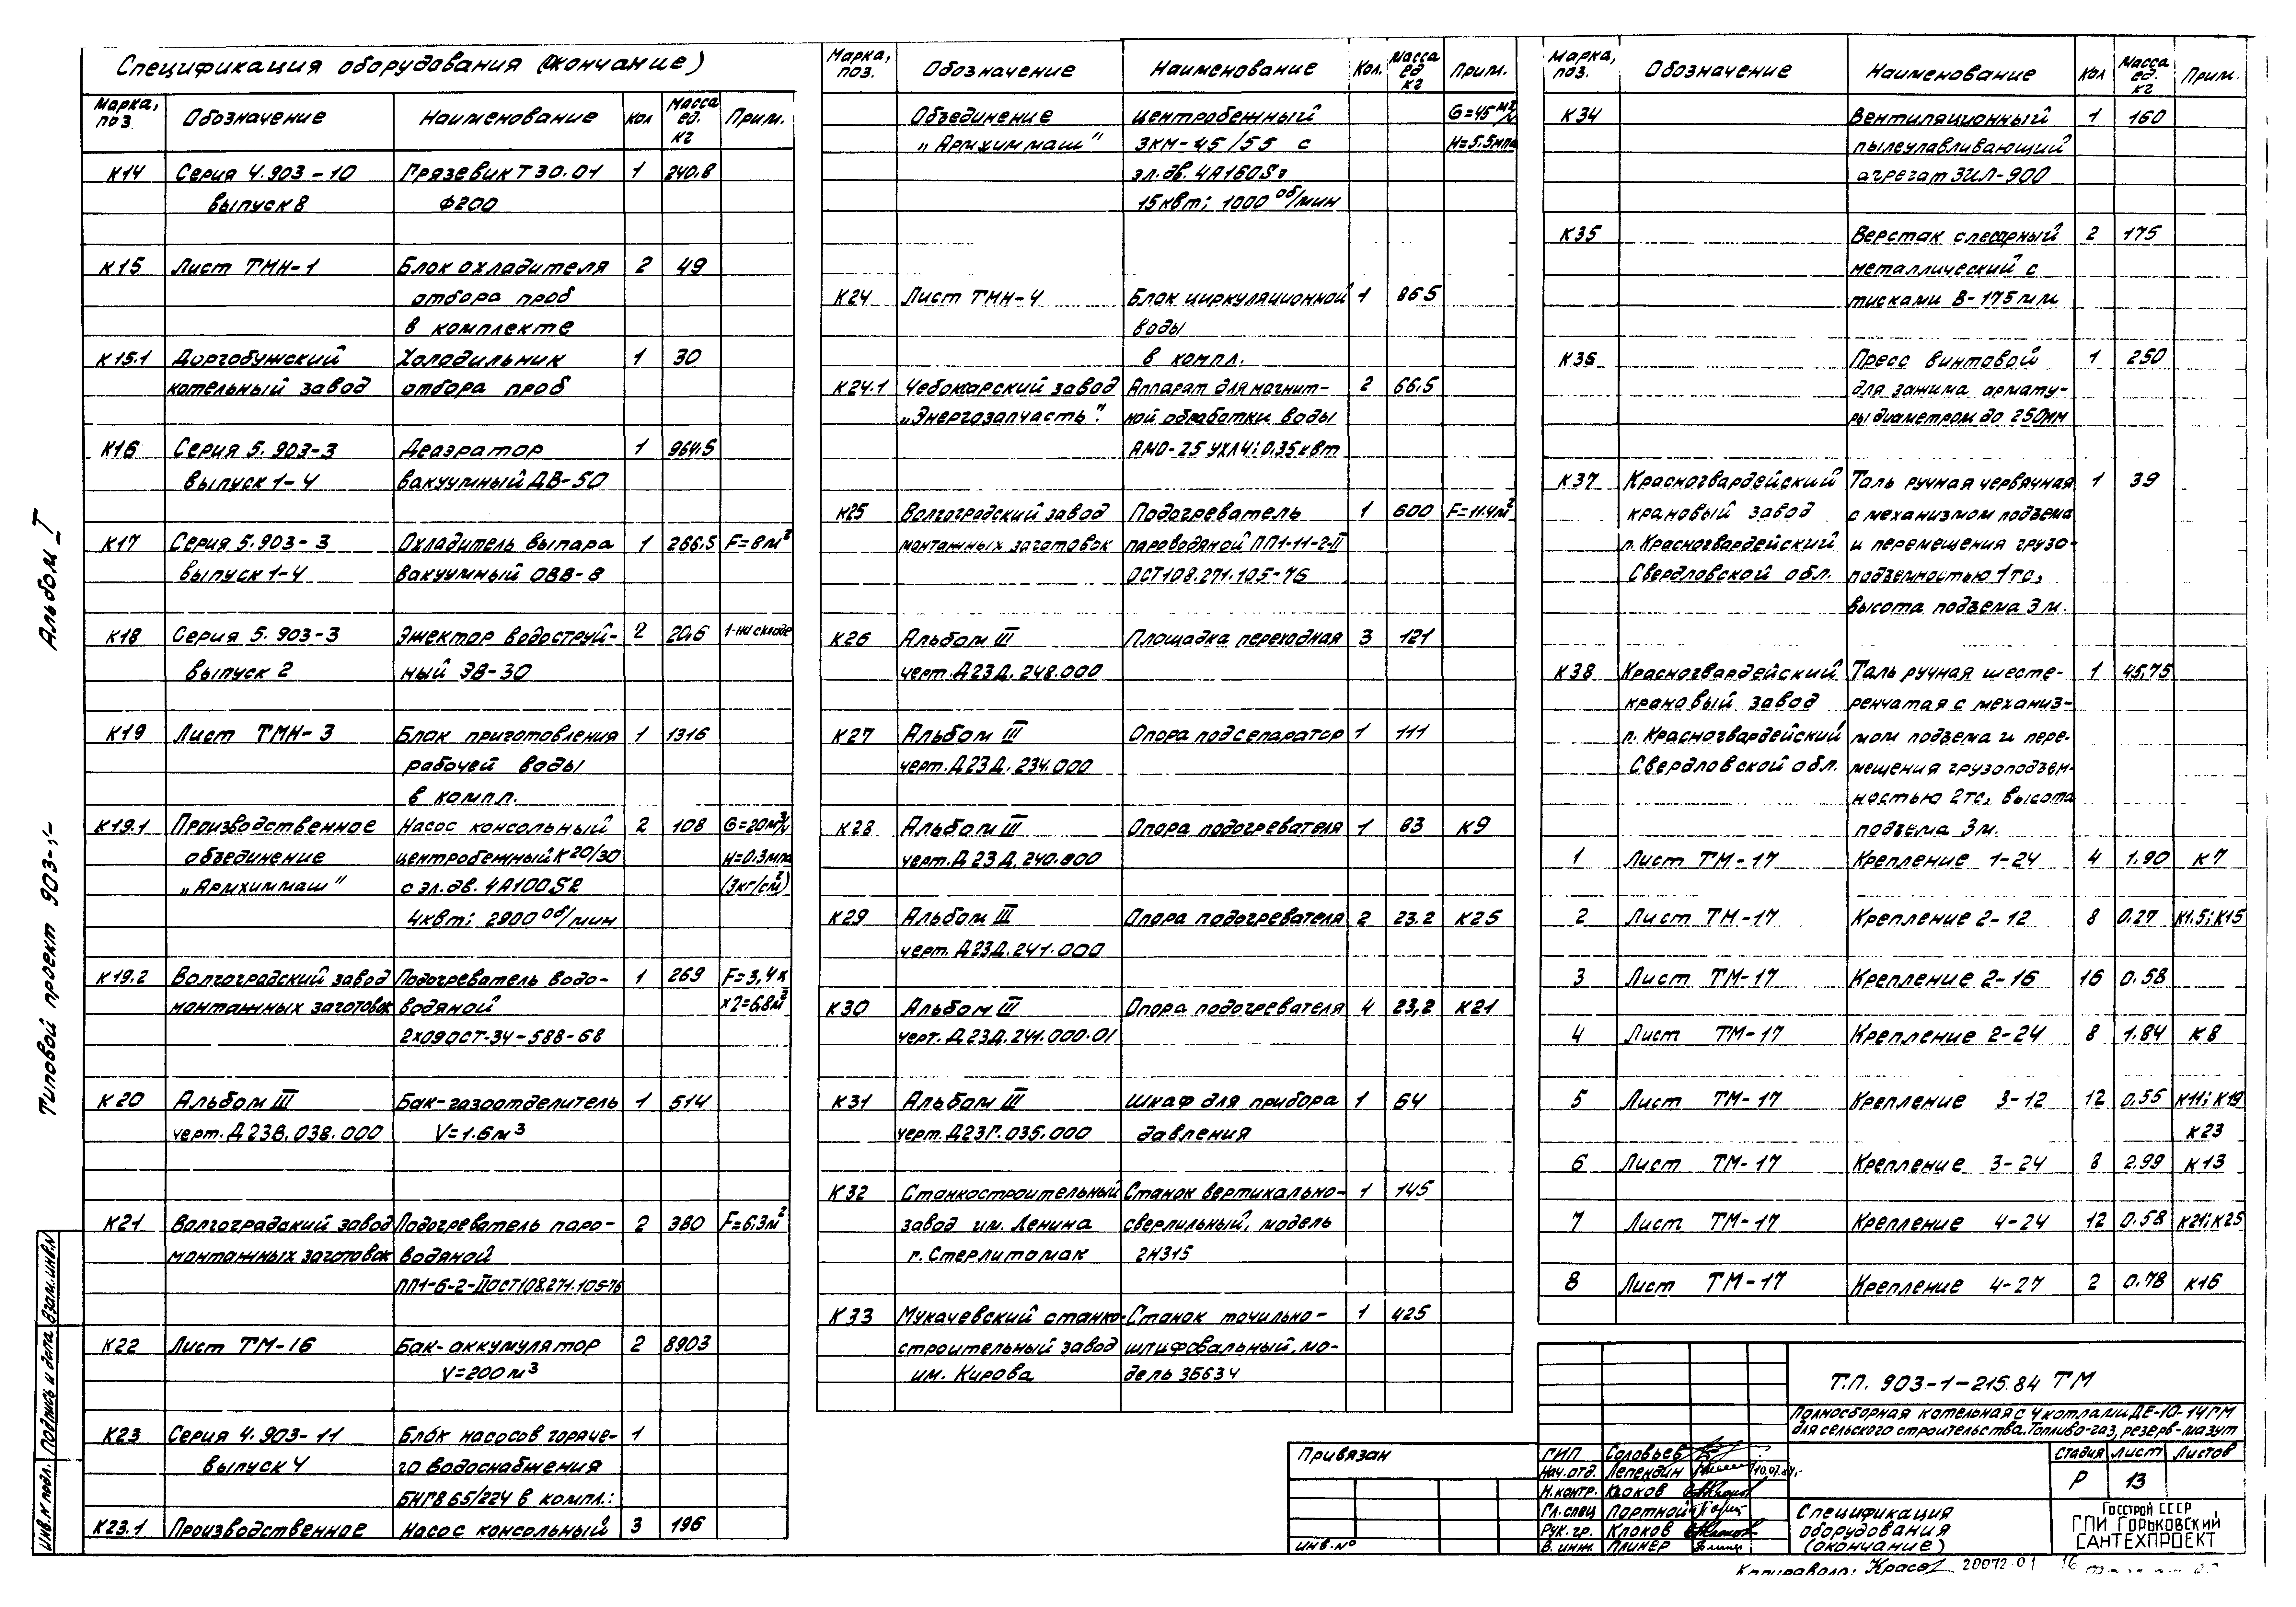 Спецификация оборудования (окончание)
Марка, поз. Обозначение Наименование Кол Масса ед. кг Прим.
К14 Серия 4.903-10 Грязевик Т30.01 1 240.8
выпуск 8 Ф200
К15 Лист ТМН-1 Блок охладителя 2 49
отбора проб
в комплекте
К15.1 Доргобужский Холодильник 1 30
котельный завод отбора проб
К16 Серия 5.903-3 Деаэратор 1 964.5
выпуск 1-4 вакуумный ДВ-50
К17 Серия 5.903-3 Охладитель выпара 1 266.5 F=8м²
выпуск 1-4 вакуумный ОВВ-8
К18 Серия 5.903-3 Эжектор водоструй- 2 20.6 1-на складе
выпуск 2 ный ЭВ-30
К19 Лист ТМН-3 Блок приготовления 1 1316
рабочей воды
в компл.
К19.1 Производственное Насос консольный 2 108 G=20м³/ч
объединение центробежный К20/30 H=0.3мпа
„Армхиммаш" с эл.дв. 4А100S2 (3кг/см²)
4квт; 2900 об/мин
К19.2 Волгоградский завод Подогреватель водо- 1 269 F=3,4х
монтажных заготовок водяной х2=6,8м²
2х09ОСТ-34-588-68
К20 Альбом III Бак-газоотделитель 1 514
черт. Д23В.038.000 V=1.6м³
К21 Волгоградский завод Подогреватель паро- 2 380 F=6.3м²
монтажных заготовок водяной
ПП1-6-2-II ОСТ108.271.105-76
К22 Лист ТМ-16 Бак-аккумулятор 2 8903
V=200м³
К23 Серия 4.903-11 Блок насосов горяче- 1
выпуск 4 го водоснабжения
БНГВ 65/224 в компл.:
К23.1 Производственное Насос консольный 3 196
Марка, поз. Обозначение Наименование Кол. Масса ед кг Прим.
Объединение центробежный G=45м³/ч
„Армхиммаш" 3КМ-45/55 с H=5.5мпа
эл.дв. 4А160S2
15квт; 1000 об/мин
К24 Лист ТМН-4 Блок циркуляционной 1 865
воды
в компл.
К24.1 Чебоксарский завод Аппарат для магнит- 2 66.5
„Энергозапчасть". ной обработки воды
АМО-25 УХЛ4; 0.35квт
К25 Волгоградский завод Подогреватель 1 600 F=11.4м²
монтажных заготовок пароводяной ПП1-11-2-II
ОСТ108.271.105-76
К26 Альбом III Площадка переходная 3 121
черт. Д23Д.248.000
К27 Альбом III Опора подсепаратор 1 111
черт. Д23Д.234.000
К28 Альбом III Опора подогревателя 1 83 К9
черт. Д23Д.240.000
К29 Альбом III Опора подогревателя 2 23.2 К25
черт. Д23Д.241.000
К30 Альбом III Опора подогревателя 4 23,2 К21
черт. Д23Д.241.000-01
К31 Альбом III Шкаф для прибора 1 64
черт. Д23Г.035.000 давления
К32 Станкостроительный Станок вертикально- 1 145
завод им. Ленина сверлильный, модель
г. Стерлитомак 2Н315
К33 Мукачевский станко- Станок точильно- 1 425
строительный завод шлифовальный, мо-
им. Кирова дель 3Б634
Марка, поз. Обозначение Наименование Кол Масса ед. кг Прим.
К34 Вентиляционный 1 160
пылеулавливающий
агрегат ЗИЛ-900
К35 Верстак слесарный 2 175
металлический с
тисками В-175мм
К36 Пресс винтовой 1 250
для зажима армату-
ры диаметром до 250мм
К37 Красногвардейский Таль ручная червячная 1 39
крановый завод с механизмом подъема
п. Красногвардейский и перемещения грузо-
Свердловской обл. подъемностью 1тс,
высота подъема 3м.
К38 Красногвардейский Таль ручная шесте- 1 45,75
крановый завод ренчатая с механиз-
п. Красногвардейский мом подъема и пере-
Свердловской обл. мещения грузоподъем-
ностью 2тс, высота
подъема 3м.
1 Лист ТМ-17 Крепление 1-24 4 1.90 К7
2 Лист ТМ-17 Крепление 2-12 8 0.27 К1.5; К15
3 Лист ТМ-17 Крепление 2-16 16 0.58
4 Лист ТМ-17 Крепление 2-24 8 1.84 К8
5 Лист ТМ-17 Крепление 3-12 12 0.55 К11; К19
К23
6 Лист ТМ-17 Крепление 3-24 8 2.99 К13
7 Лист ТМ-17 Крепление 4-24 12 0.58 К21; К25
8 Лист ТМ-17 Крепление 4-27 2 0.78 К16
Т.П. 903-1-215.84 ТМ
Полносборная котельная с 4 котлами ДЕ-10-14ГМ
для сельского строительства. Топливо-газ, резерв-мазут
Стадия Лист Листов
Р 13
Спецификация
оборудования
(окончание)
Госстрой СССР
ГПИ Горьковский
САНТЕХПРОЕКТ
ГИП Соловьев
Нач.отд. Лепендин 10.07.84
Н.контр. Клоков
Гл.спец Портной
Рук.гр. Клоков
В.инж. Плинер
Привязан
инв.№
Копировала: Красо 20072-01 16
Типовой проект 903-1- Альбом I
Инв.№ подл. Подпись и дата Взам.инв.№